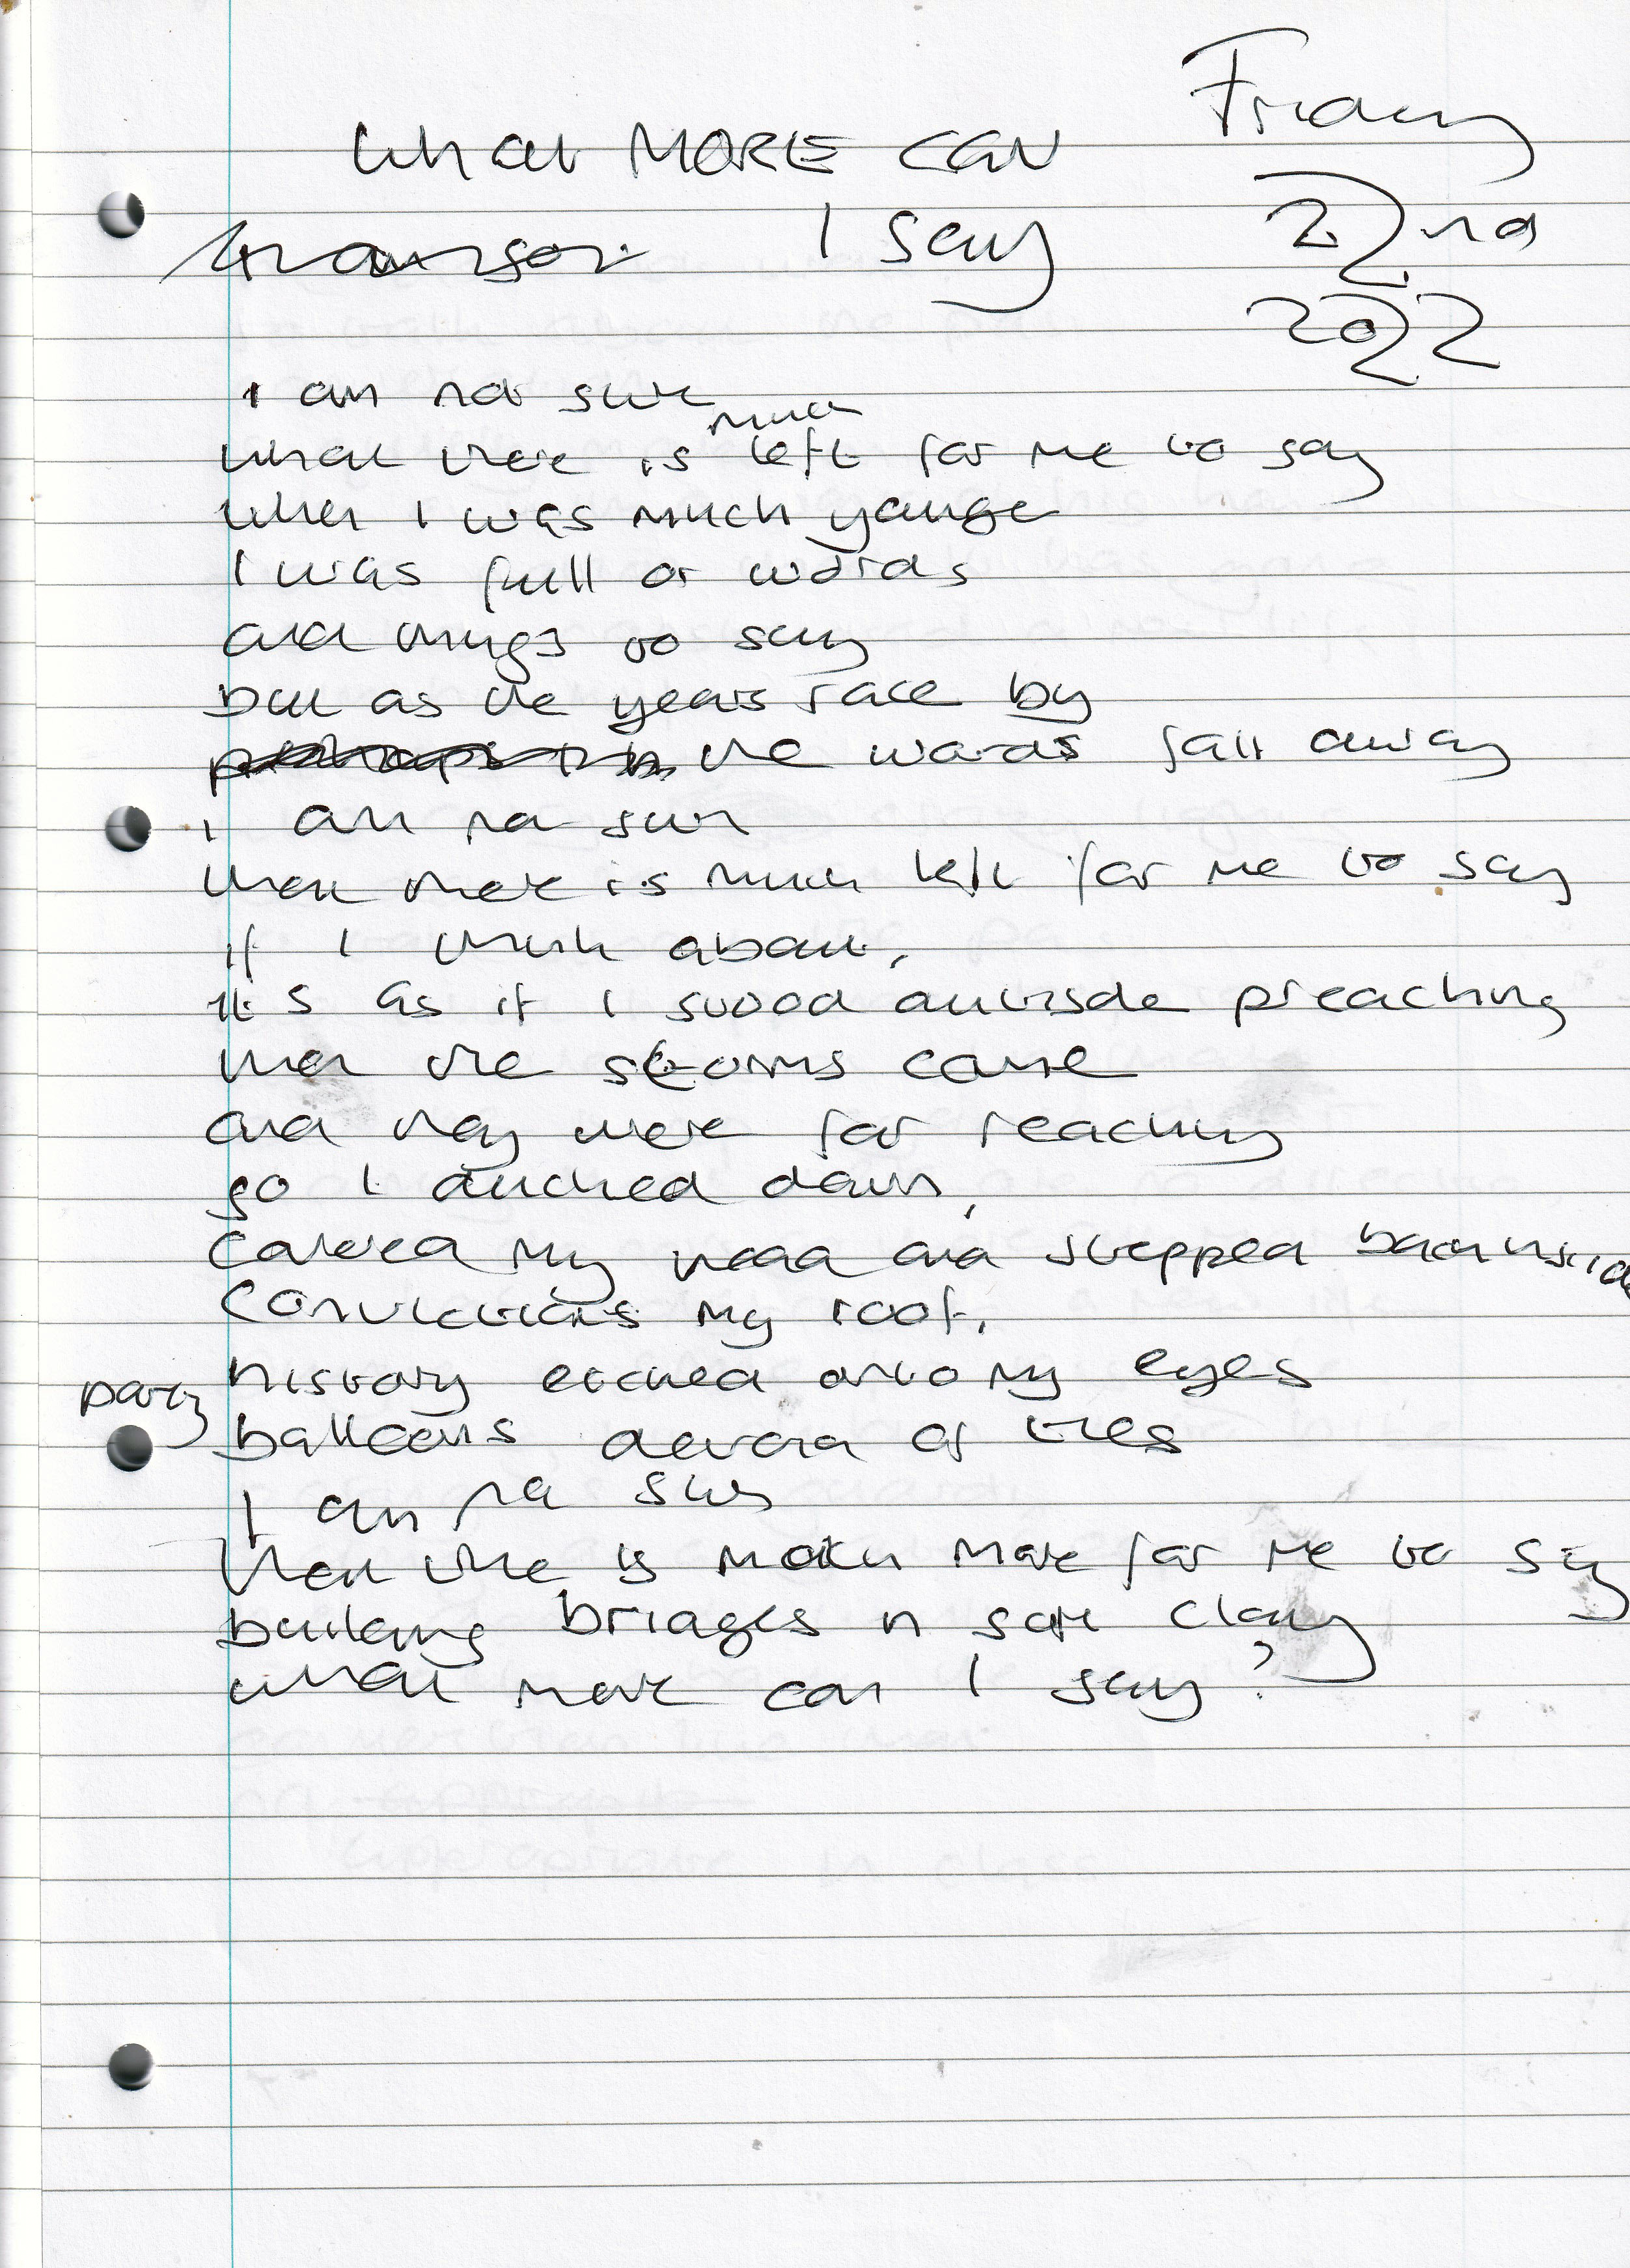 Friday
What MORE CAN
22nd
I say
2022
I am not sure
much
what there is left for me to say
when I was much younger
I was full of words
and things to say
but as the years race by
the words fall away
I am not sure
that there is much left for me to say
if I think about,
it's as if I stood outside preaching
then the storms came
and they were far reaching
so I ducked down,
covered my head and stepped back inside
Convictions my roof,
history etched onto my eyes
party balloons devoid of ties
I am not sure
that there is much more for me to say
building bridges in soft clay
what more can I say?